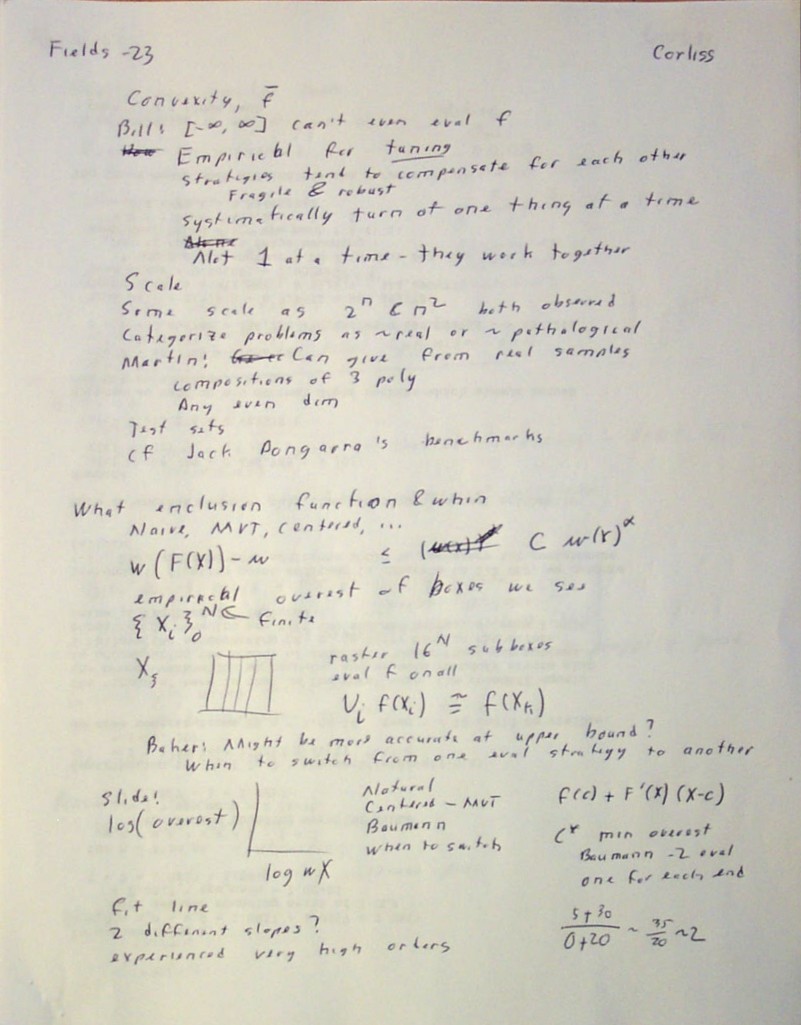 Fields -23
Corliss
Convexity, f̄
Bill: [-∞, ∞] can't even eval f
Empirical for tuning
strategies tend to compensate for each other
Fragile & robust
systematically turn of one thing at a time
Not 1 at a time - they work together
Scale
Some scale as 2^n C n^2 both observed
Categorize problems as ~real or ~pathological
Martin: Can give from real samples
compositions of 3 poly
Any even dim
Test sets
cf Jack Dongarra's benchmarks
What enclusion function & when
Naive, MVT, centered, ...
w(F(X)) - w ≤ C w(X)^α
empirical overest of boxes we see
{X_i}_0^N ← finite
raster 16^N subboxes
eval f on all
∪_i f(X_i) ≅ f(X_k)
Baker: Might be more accurate at upper bound?
When to switch from one eval strategy to another
Slide:
log(overest)
log wX
Natural
Centered - MVT
Baumann
When to switch
f(c) + F'(X)(X-c)
C* min overest
Baumann - 2 eval
one for each end
Fit line
2 different slopes?
experienced very high orders
5+30 / 0+20 ~ 35/20 ~2